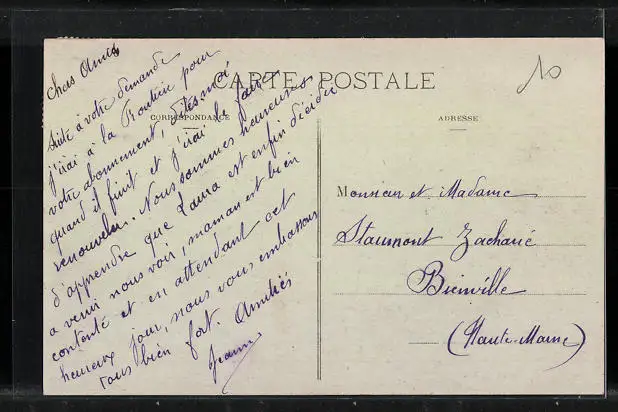 CARTE POSTALE
CORRESPONDANCE
ADRESSE
Chers Amis
Suite à votre demande
j'irai à la Routière pour
votre abonnement, dites-moi
quand il finit et j'irai le faire
renouveler. Nous sommes heureuses
d'apprendre que Laura est enfin décidée
a venir nous voir, maman est bien
contente et en attendant cet
heureux jour, nous vous embrassons
tous bien fort. Amitiés
Jeanne
Monsieur et Madame
Staumont Zacharie
Bienville
(Haute-Marne)
10